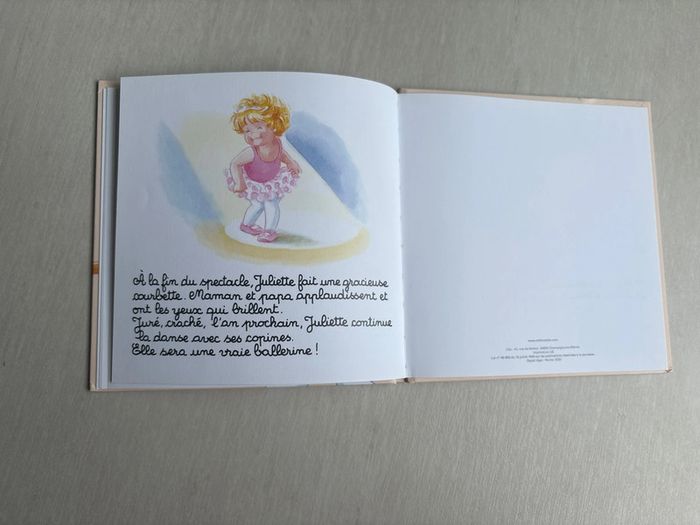 À la fin du spectacle, Juliette fait une gracieuse
courbette. Maman et papa applaudissent et
ont les yeux qui brillent.
Juré, craché, l'an prochain, Juliette continue
la danse avec ses copines.
Elle sera une vraie ballerine !